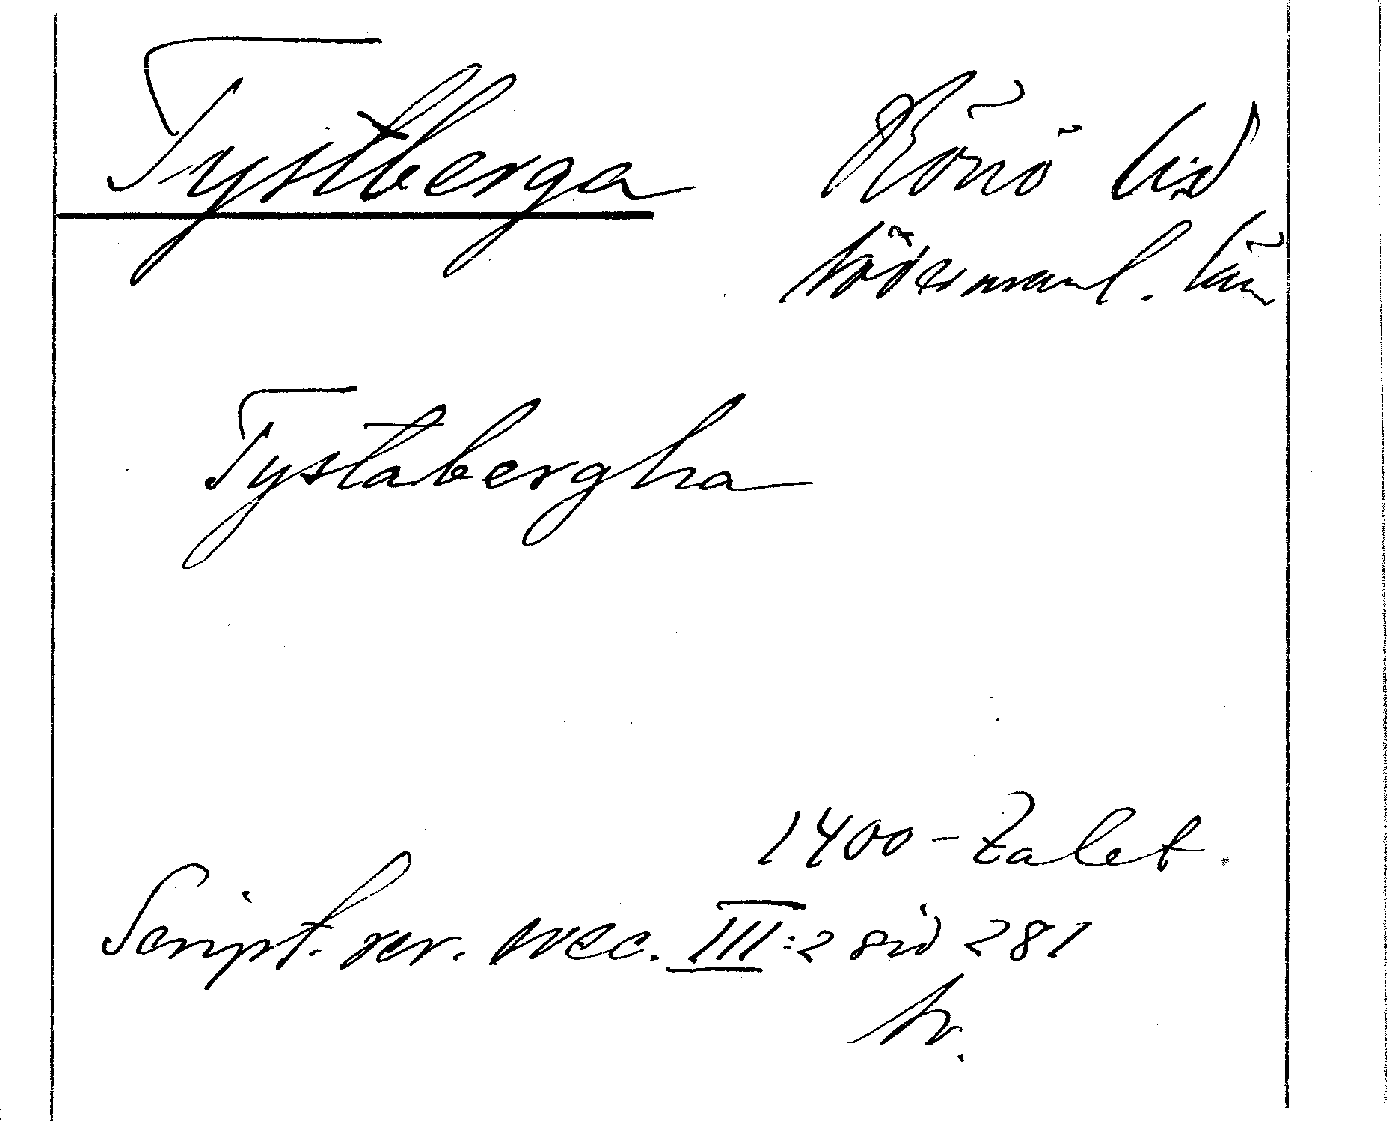 Tystberga Rönö hd
Södermanl. län
Tystabergha
1400-talet.
Script. rer. svec. III:2 sid 281
tr.